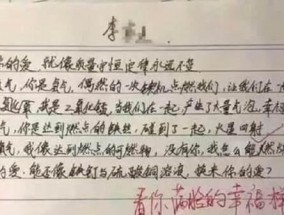 李
的爱 就像质量守恒定律永远不变
气,你是氧气,偶然的一次契机点燃我们,让我们在一
氧化氢,我是二氧化锰,当我们在一起,产生了大量气泡,幸福
气,你是达到燃点的铁丝,碰到了一起,火星四射
氧气,我像达到燃点的可燃物,没有你,我怎么能燃烧
的爱,能否像铁钉与硫酸铜溶液,换来你的爱?
看你满脸的幸福样